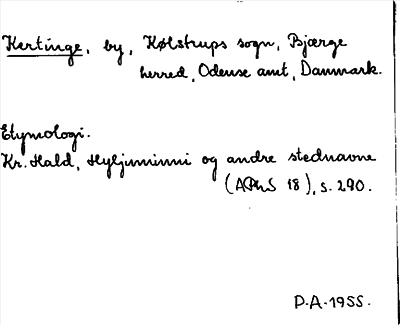 Kertinge, by, Kølstrups sogn, Bjærge
herred, Odense amt, Danmark.
Etymologi.
Kr. Hald, Hyljuminni og andre stednavne
(APhS 18), s. 290.
P.A.-1955.